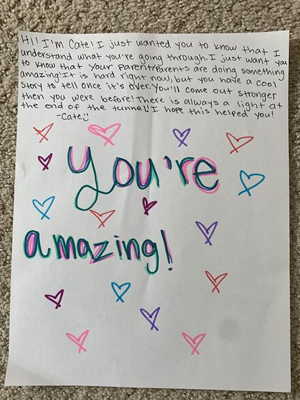 Hi! I'm Cate! I just wanted you to know that I
understand what you're going through. I just want you
to know that your Parent/Parents are doing something
amazing! It is hard right now, but you have a cool
Story to tell once it's over. You'll come out stronger
then you were before! There is always a light at
the end of the tunnel! I hope this helped you!
-Cate:)
You're
amazing!